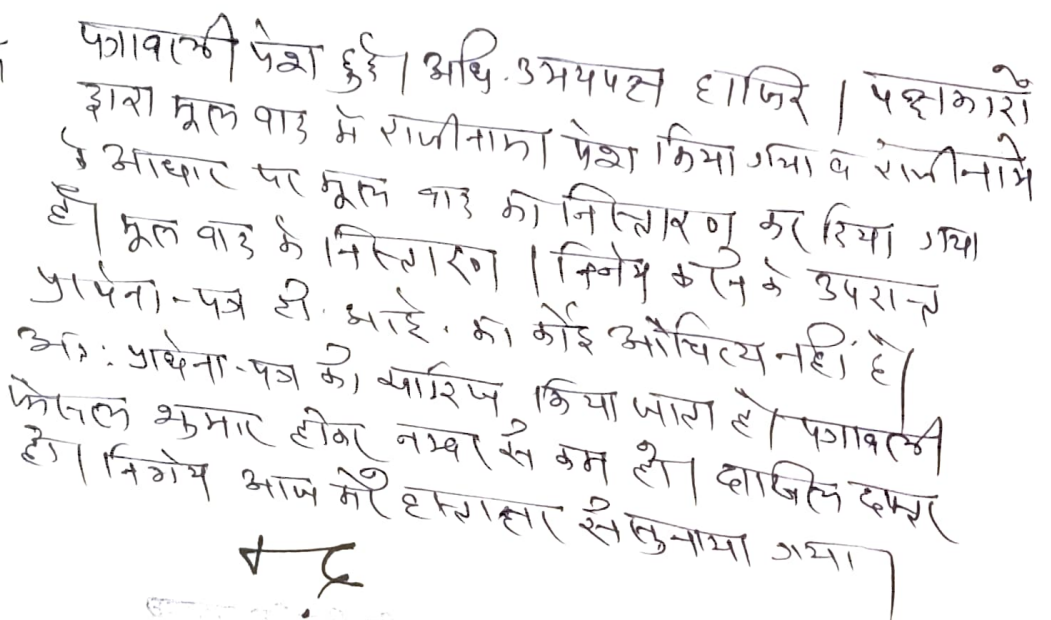 पत्रावली पेश हुई। अधि. उभयपक्ष हाजिर। पक्षकारो
द्वारा मूल वाद में राजीनामा पेश किया गया व राजीनामे
के आधार पर मूल वाद का निस्तारण कर दिया गया
है। मूल वाद के निस्तारण / निर्णय करने के उपरान्त
प्रार्थना-पत्र टी. आई. का कोई औचित्य नहीं है।
अतः प्रार्थना-पत्र को खारिज किया जाता है। पत्रावली
फैसल शुमार होकर नम्बर से कम हो। दाखिल दफ्तर
हो। निर्णय आज मेरे हस्ताक्षर से सुनाया गया।